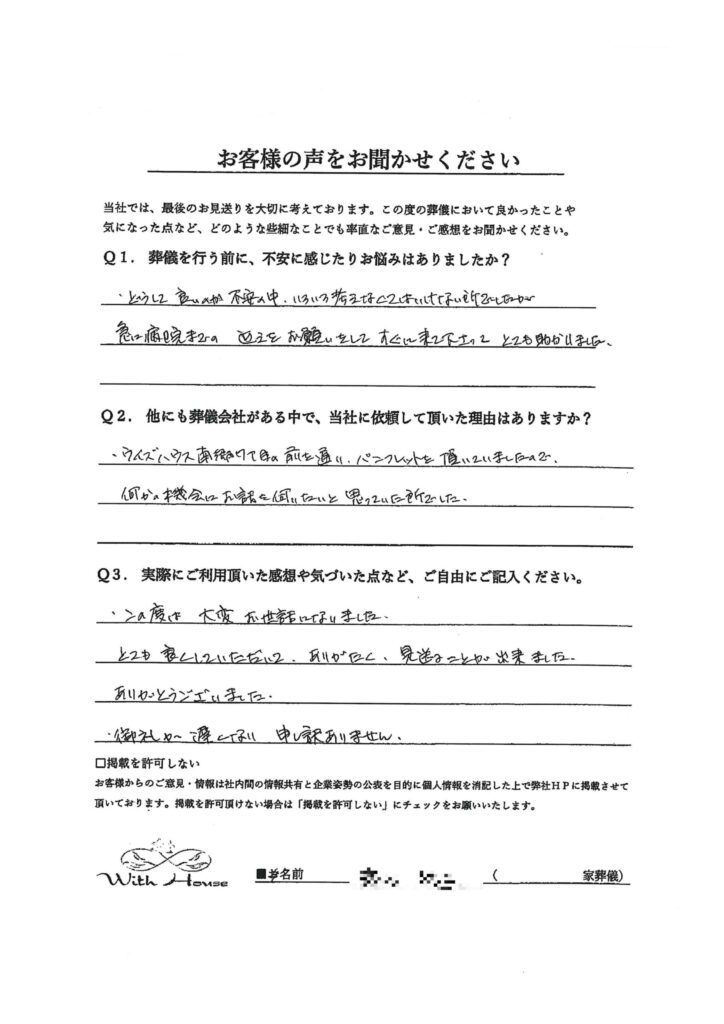 お客様の声をお聞かせください
当社では、最後のお見送りを大切に考えております。この度の葬儀において良かったことや
気になった点など、どのような些細なことでも率直なご意見・ご感想をお聞かせください。
Q1. 葬儀を行う前に、不安に感じたりお悩みはありましたか？
・どうして良いのか 不安の中、いろいろ考えなくてはいけない所でしたが
急に病院までの 迎えを お願いをして すぐに来て下さって とても助かりました。
Q2. 他にも葬儀会社がある中で、当社に依頼して頂いた理由はありますか？
・ウイズハウス南郷 丁目の 前を通い、パンフレットを 頂いていましたので、
何かの機会に お話を 伺いたいと 思っていた所でした。
Q3. 実際にご利用頂いた感想や気づいた点など、ご自由にご記入ください。
・この度は 大変 お世話になりました。
とても 良くしていただいて、ありがたく、見送ることが 出来ました。
ありがとうございました。
・御礼が 遅くなり 申し訳ありません。
□掲載を許可しない
お客様からのご意見・情報は社内間の情報共有と企業姿勢の公表を目的に個人情報を消記した上で弊社HPに掲載させて
頂いております。掲載を許可頂けない場合は「掲載を許可しない」にチェックをお願いいたします。
With House
名前 （ 家葬儀）